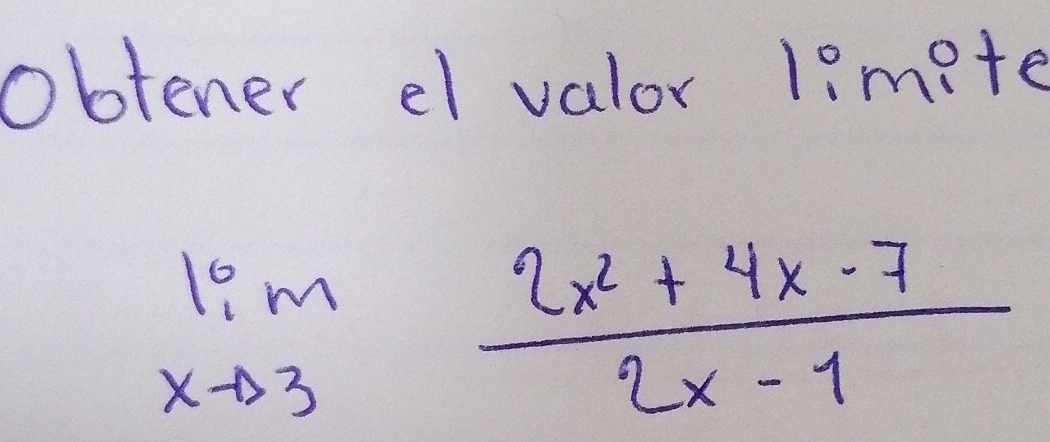 Obtener el valor limite
lim 2x² + 4x - 7
x→3 2x - 1